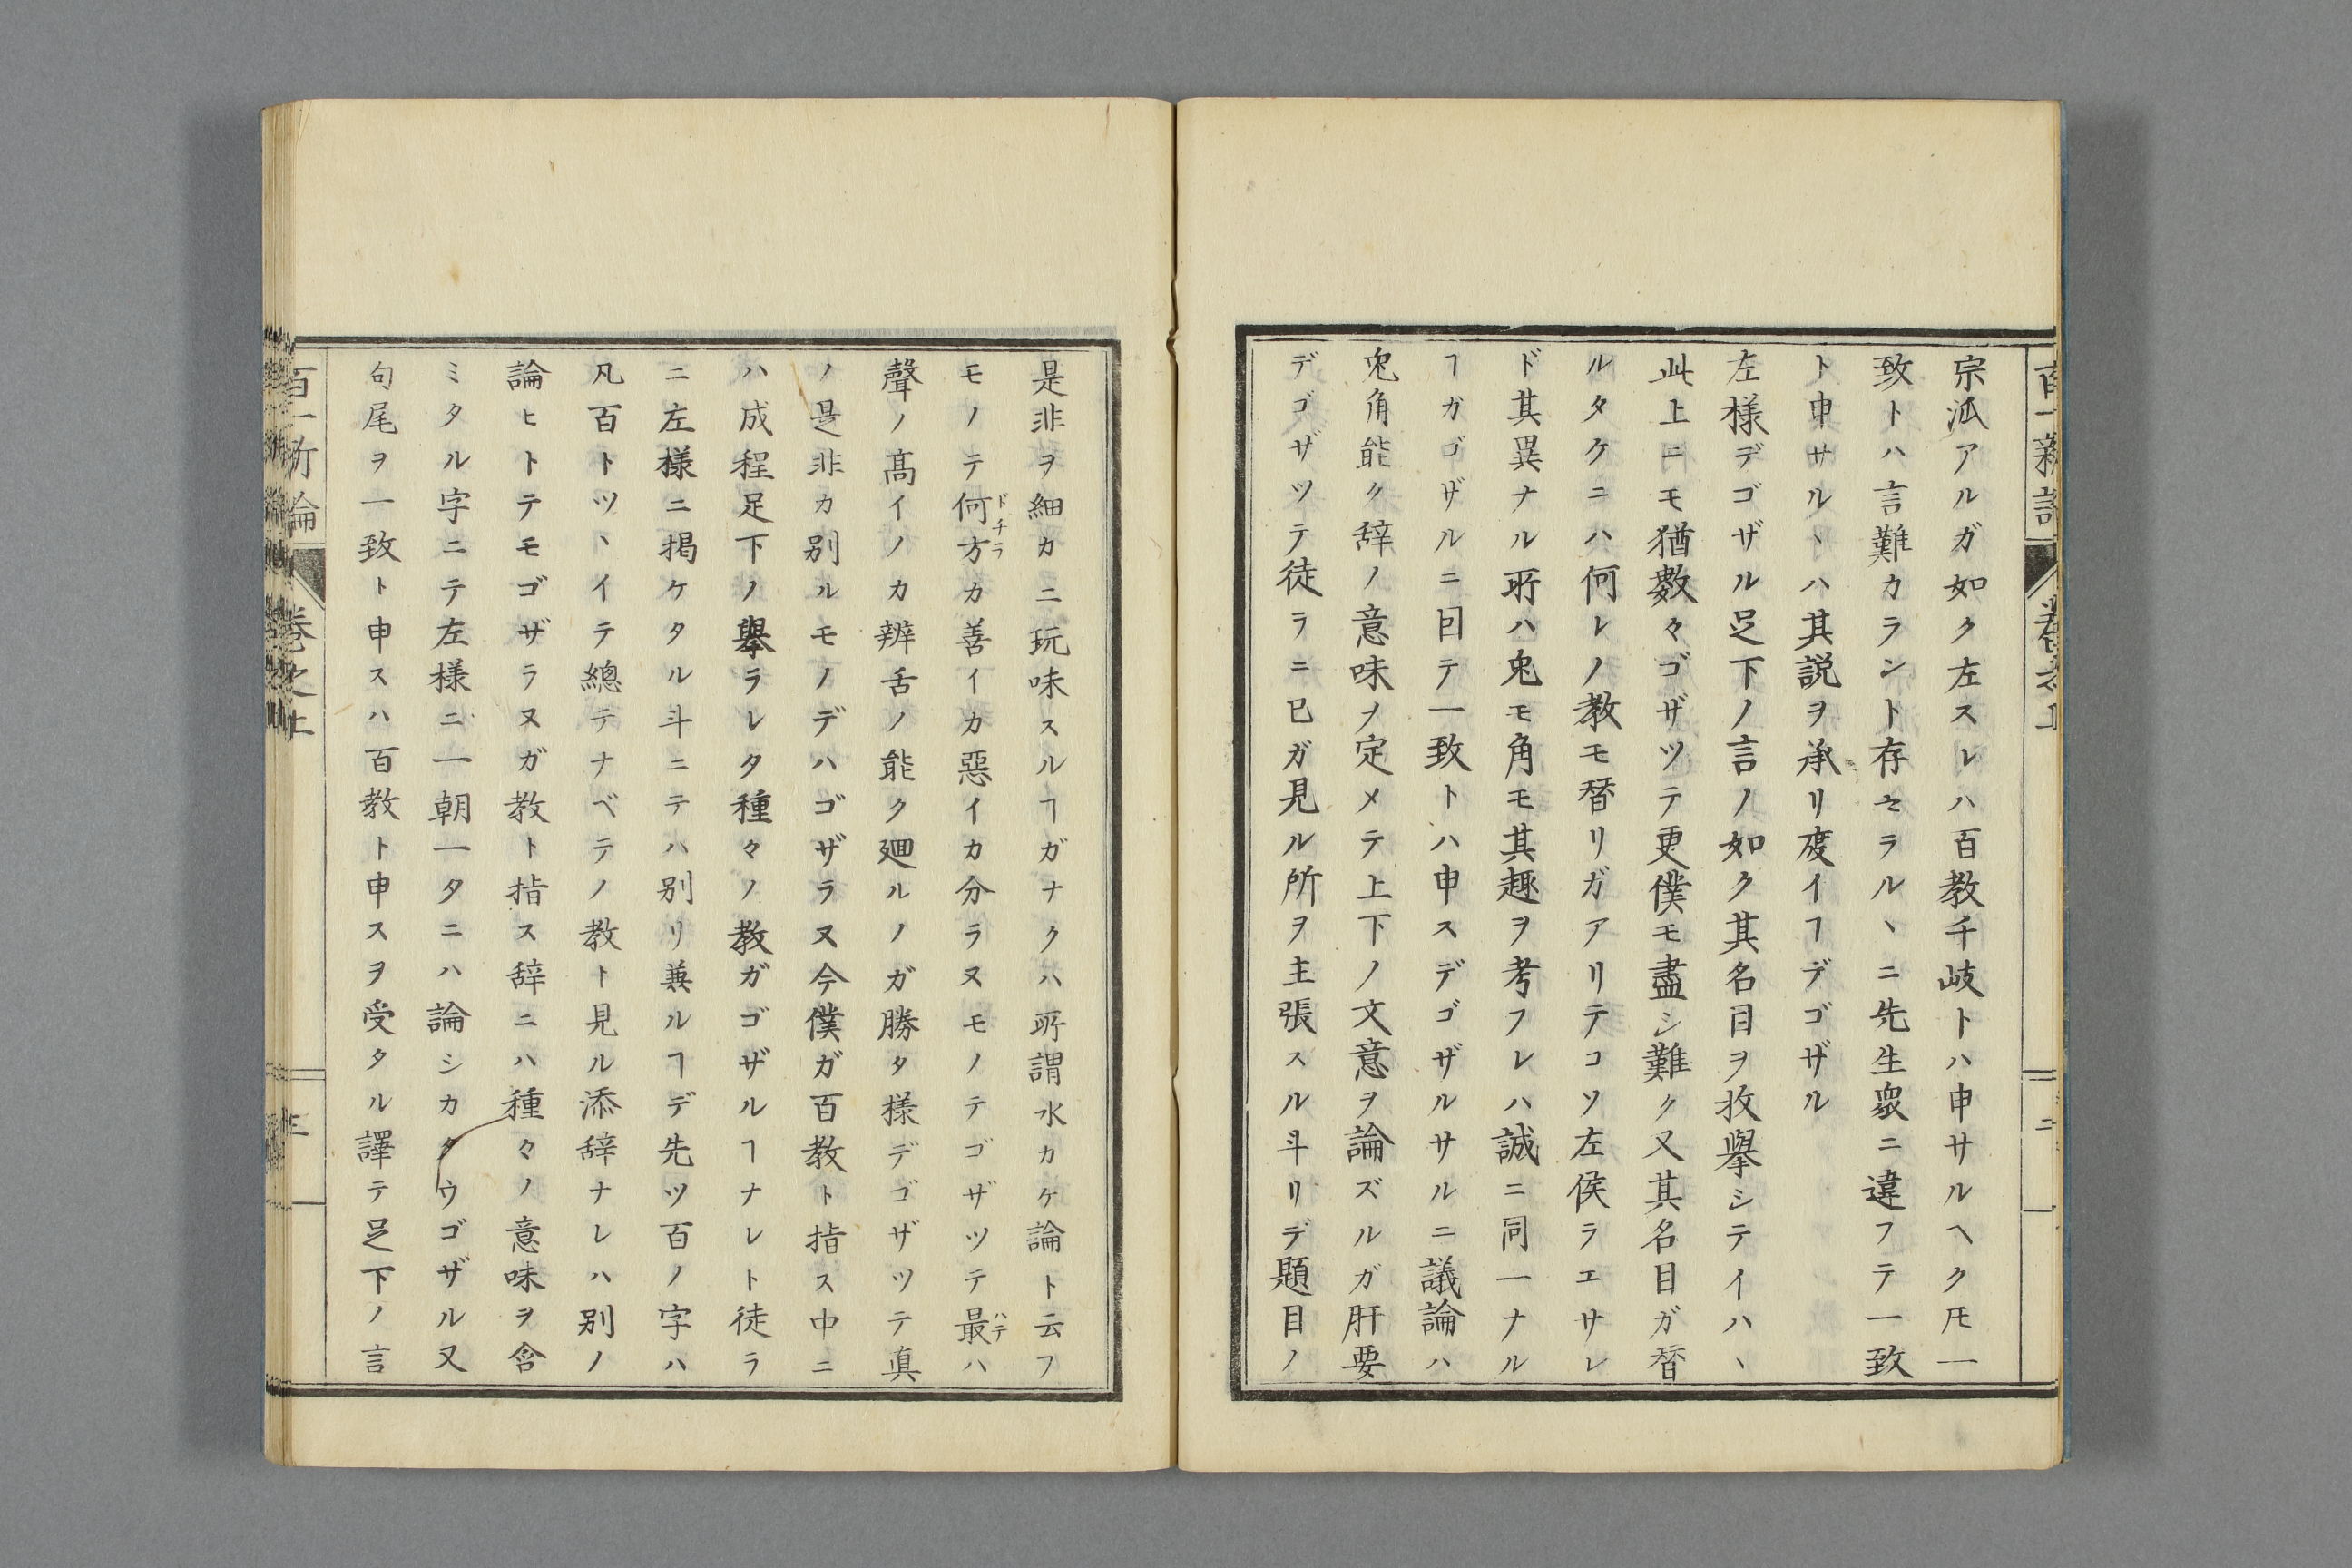 百一新論 卷之上 二
宗派アルガ如ク左スレハ百教千岐トハ申サルヘク𪜈一
致トハ言難カラント存セラルヽニ先生衆ニ違フテ一致
ト申サルヽハ其説ヲ承リ度イヿデゴザル
左様デゴザル足下ノ言ノ如ク其名目ヲ枚擧シテイハヽ
此上ニモ猶數々ゴザツテ更僕モ盡シ難ク又其名目ガ替
ルタケニハ何レノ教モ替リガアリテコソ左侯ラエサレ
ド其異ナル所ハ兎モ角モ其趣ヲ考フレハ誠ニ同一ナル
ヿガゴザルニ因テ一致トハ申スデゴザルサルニ議論ハ
兎角能ク辞ノ意味ヲ定メテ上下ノ文意ヲ論ズルガ肝要
デゴザツテ徒ラニ已ガ見ル所ヲ主張スル斗リデ題目ノ
是非ヲ細カニ玩味スルヿガナクハ所謂水カケ論ト云フ
モノテ何方カ善イカ惡イカ分ラヌモノテゴザツテ最ハ
ドチラ
ハテ
聲ノ髙イノカ辨舌ノ能ク廻ルノガ勝タ様デゴザツテ真
ノ是非カ別ルモノデハゴザラヌ今僕ガ百教ト指ス中ニ
ハ成程足下ノ擧ラレタ種々ノ教ガゴザルヿナレト徒ラ
ニ左様ニ掲ケタル斗ニテハ別リ兼ルヿデ先ツ百ノ字ハ
凡百トツヽイテ總テナベテノ教ト見ル添辞ナレハ別ノ
論ヒトテモゴザラヌガ教ト指ス辞ニハ種々ノ意味ヲ含
ミタル字ニテ左様ニ一朝一夕ニハ論シカタウゴザル又
句尾ヲ一致ト申スハ百教ト申スヲ受タル譯テ足下ノ言
百一新論 卷之上 三